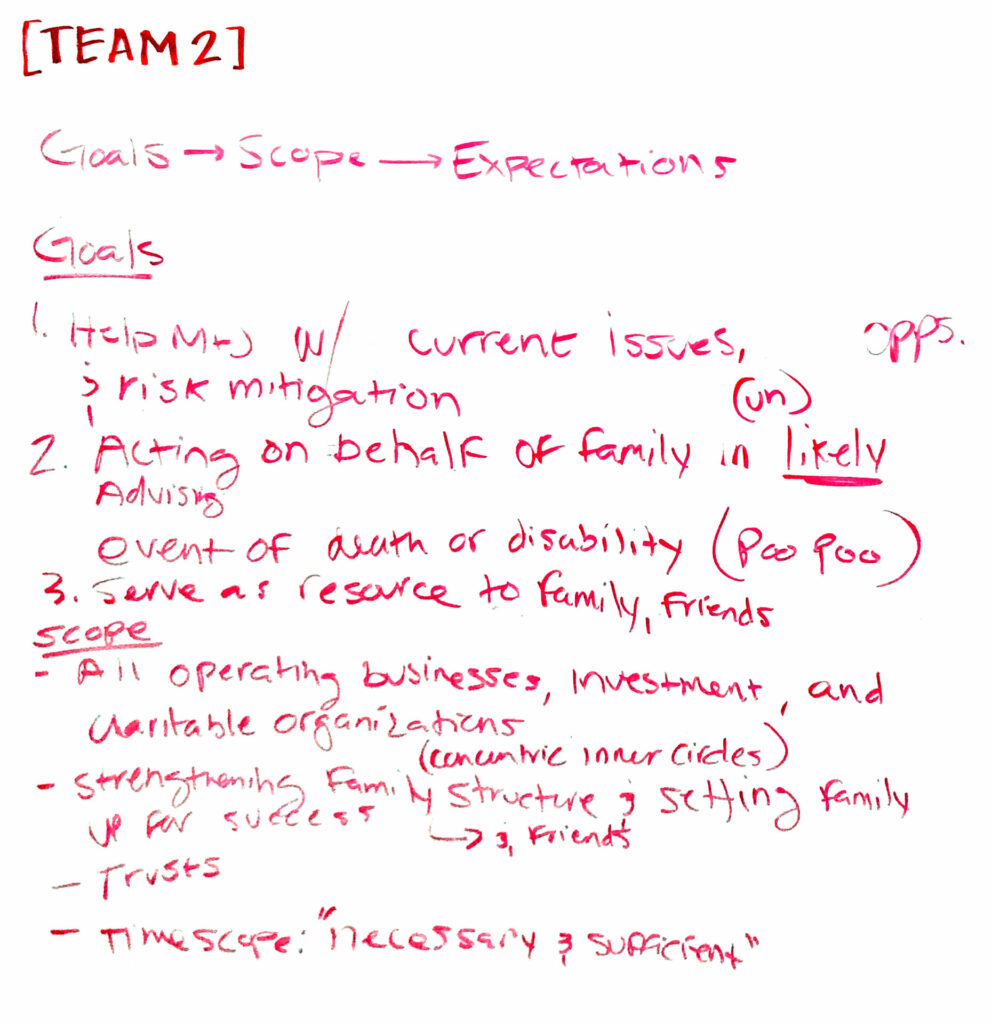 [TEAM 2]
Goals → Scope → Expectations
Goals
1. Help M+J w/ current issues, opps.
& risk mitigation
(un)
2. Acting on behalf of family in likely
Advising
event of death or disability (poo poo)
3. Serve as resource to family, Friends
Scope
- All operating businesses, investment, and
charitable organizations
(concentric inner circles)
- Strengthening Family Structure & setting family
up for success
↳ & Friends
- Trusts
- Timescope: "necessary & sufficient"